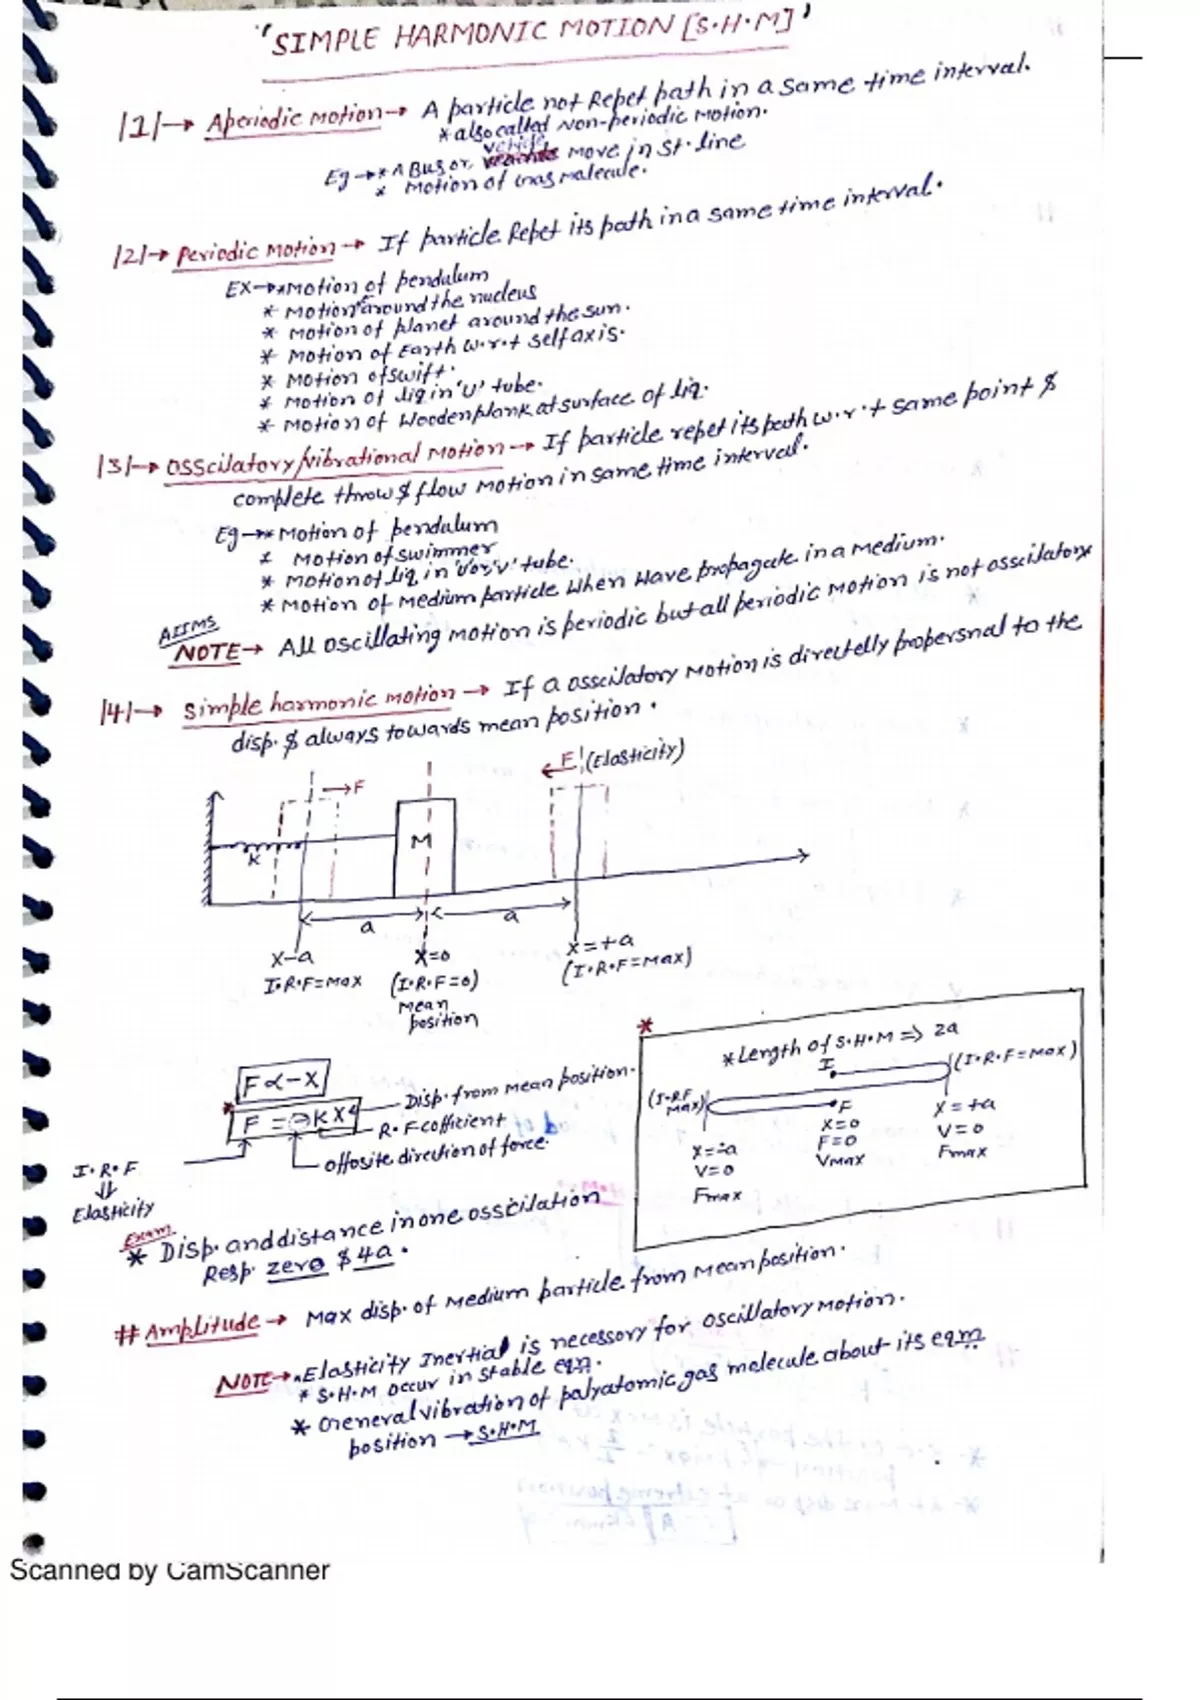 "SIMPLE HARMONIC MOTION [S.H.M]'
|1|→ Aperiodic motion→ A particle not Repet path in a same time interval.
* also called Non-periodic Motion.
vehicle
Eg→* A Bus or move in st. line
* Motion of Gas Malecule.
|2|→ Periodic Motion→ If particle Repet its path in a same time interval.
EX→*Motion of pendulum
* Motion around the nucleus
* Motion of planet around the sun.
* Motion of Earth w.r.t self axis.
* Motion of swift.
* Motion of liq in 'U' tube.
* Motion of Wooden plank at surface of liq.
|3|→ osscilatory/vibrational Motion→ If particle repet its path w.r.t same point $
complete throw $ flow Motion in same time interval.
Eg→* Motion of pendulum
* Motion of swimmer
* Motion of liq in 'U' or 'V' tube.
* Motion of Medium particle When Wave propagate in a Medium.
AIIMS
NOTE→ All oscillating motion is periodic but all periodic Motion is not osscilatory
|4|→ Simple harmonic motion → If a osscilatory Motion is directelly propersnal to the
disp. $ always towards mean position.
F (Elasticity)
→F
M
K
a a
X-a X=0 X=+a
I.R.F=Max (I.R.F=0) (I.R.F=Max)
Mean
position
*
*Length of S.H.M => 2a
I (I.R.F=Max)
(I.R.F Max)
F
X=0 X=+a
X=-a F=0 V=0
V=0 VMax Fmax
Fmax
F∝-X
* F = -KX
Disp. from mean position.
R.F cofficient
opposite direction of force.
I.R.F
⇓
Elasticity
Exam
* Disp. and distance in one osscilation
Resp. zero $ 4a.
# Amplitude→ Max disp. of Medium particle from Mean position.
NOTE→* Elasticity Inertial is necessory for oscillatory Motion.
* S.H.M occur in stable eqn.
* General vibration of polyatomic gas molecule about its eqm
position → S.H.M
Scanned by CamScanner